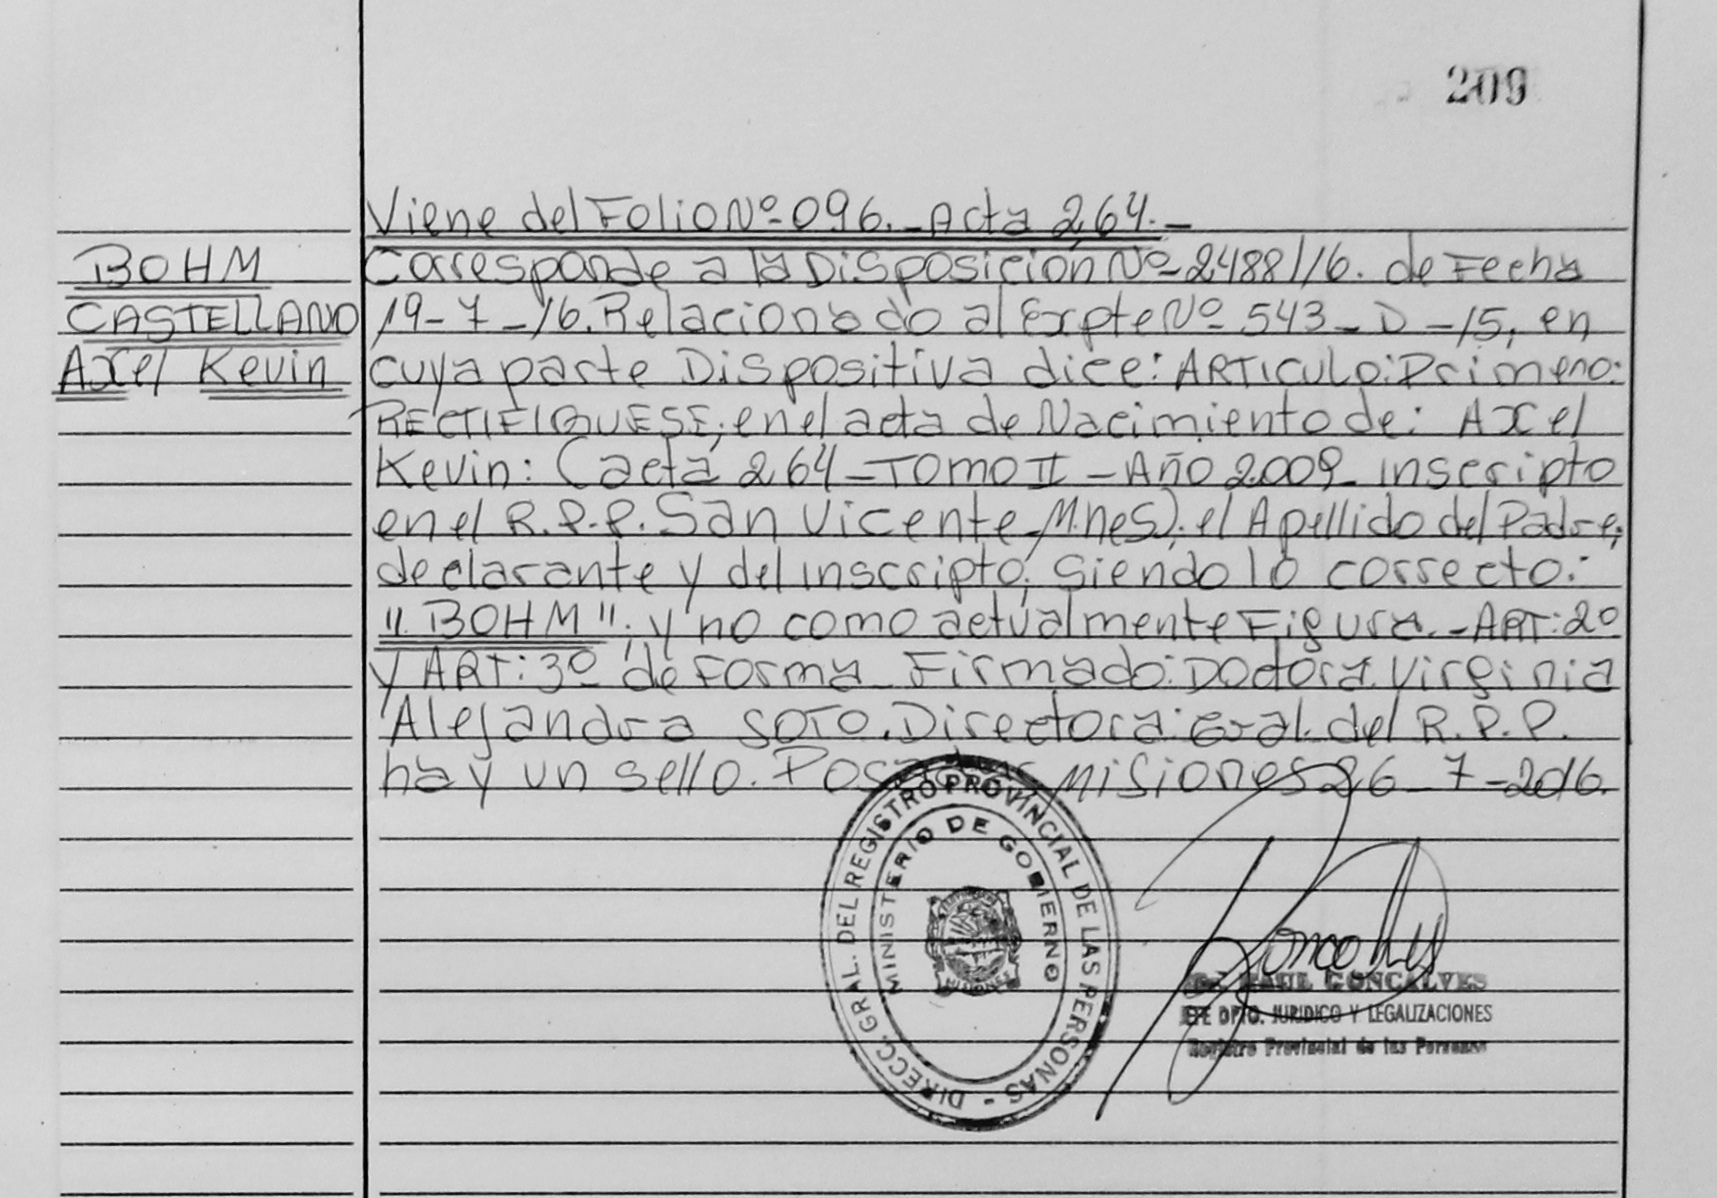 209
Viene del Folio Nº 096._ Acta 264._
BOHM
CASTELLANO
Axel Kevin
Corresponde a la Disposición Nº 2488/16. de Fecha
19-7-16. Relacionado al Expte Nº 543-D-15, en
cuya parte Dispositiva dice: ARTICULO: Primero:
RECTIFIQUESE; en el acta de Nacimiento de: Axel
Kevin: (acta 264-TOMO II-Año 2009 inscripto
en el R.P.P. San Vicente Mnes); el Apellido del Padre,
declarante y del inscripto, siendo lo correcto:
"BOHM"; y no como actualmente Figura._ART:2º
y ART:3º de Forma Firmado: Doctora Virginia
Alejandra SOTO. Directora Gral. del R.P.P.
hay un sello. Posadas Misiones 26-7-2016.
DIRECC. GRAL. DEL REGISTRO PROVINCIAL DE LAS PERSONAS -
MINISTERIO DE GOBIERNO
RAUL GONCALVES
JEFE DPTO. JURIDICO Y LEGALIZACIONES
Registro Provincial de las Personas